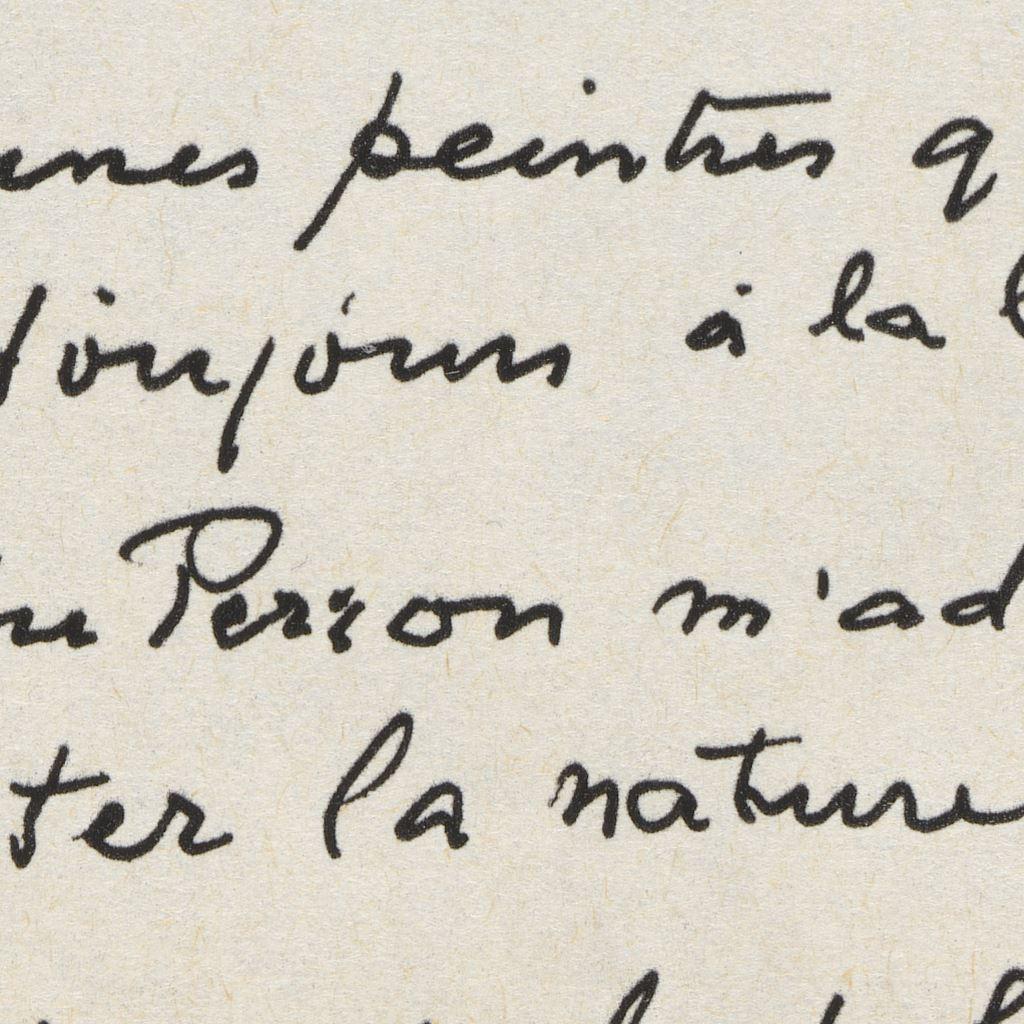 unes peintres q
toujours à la
Person m'ad
ter la nature